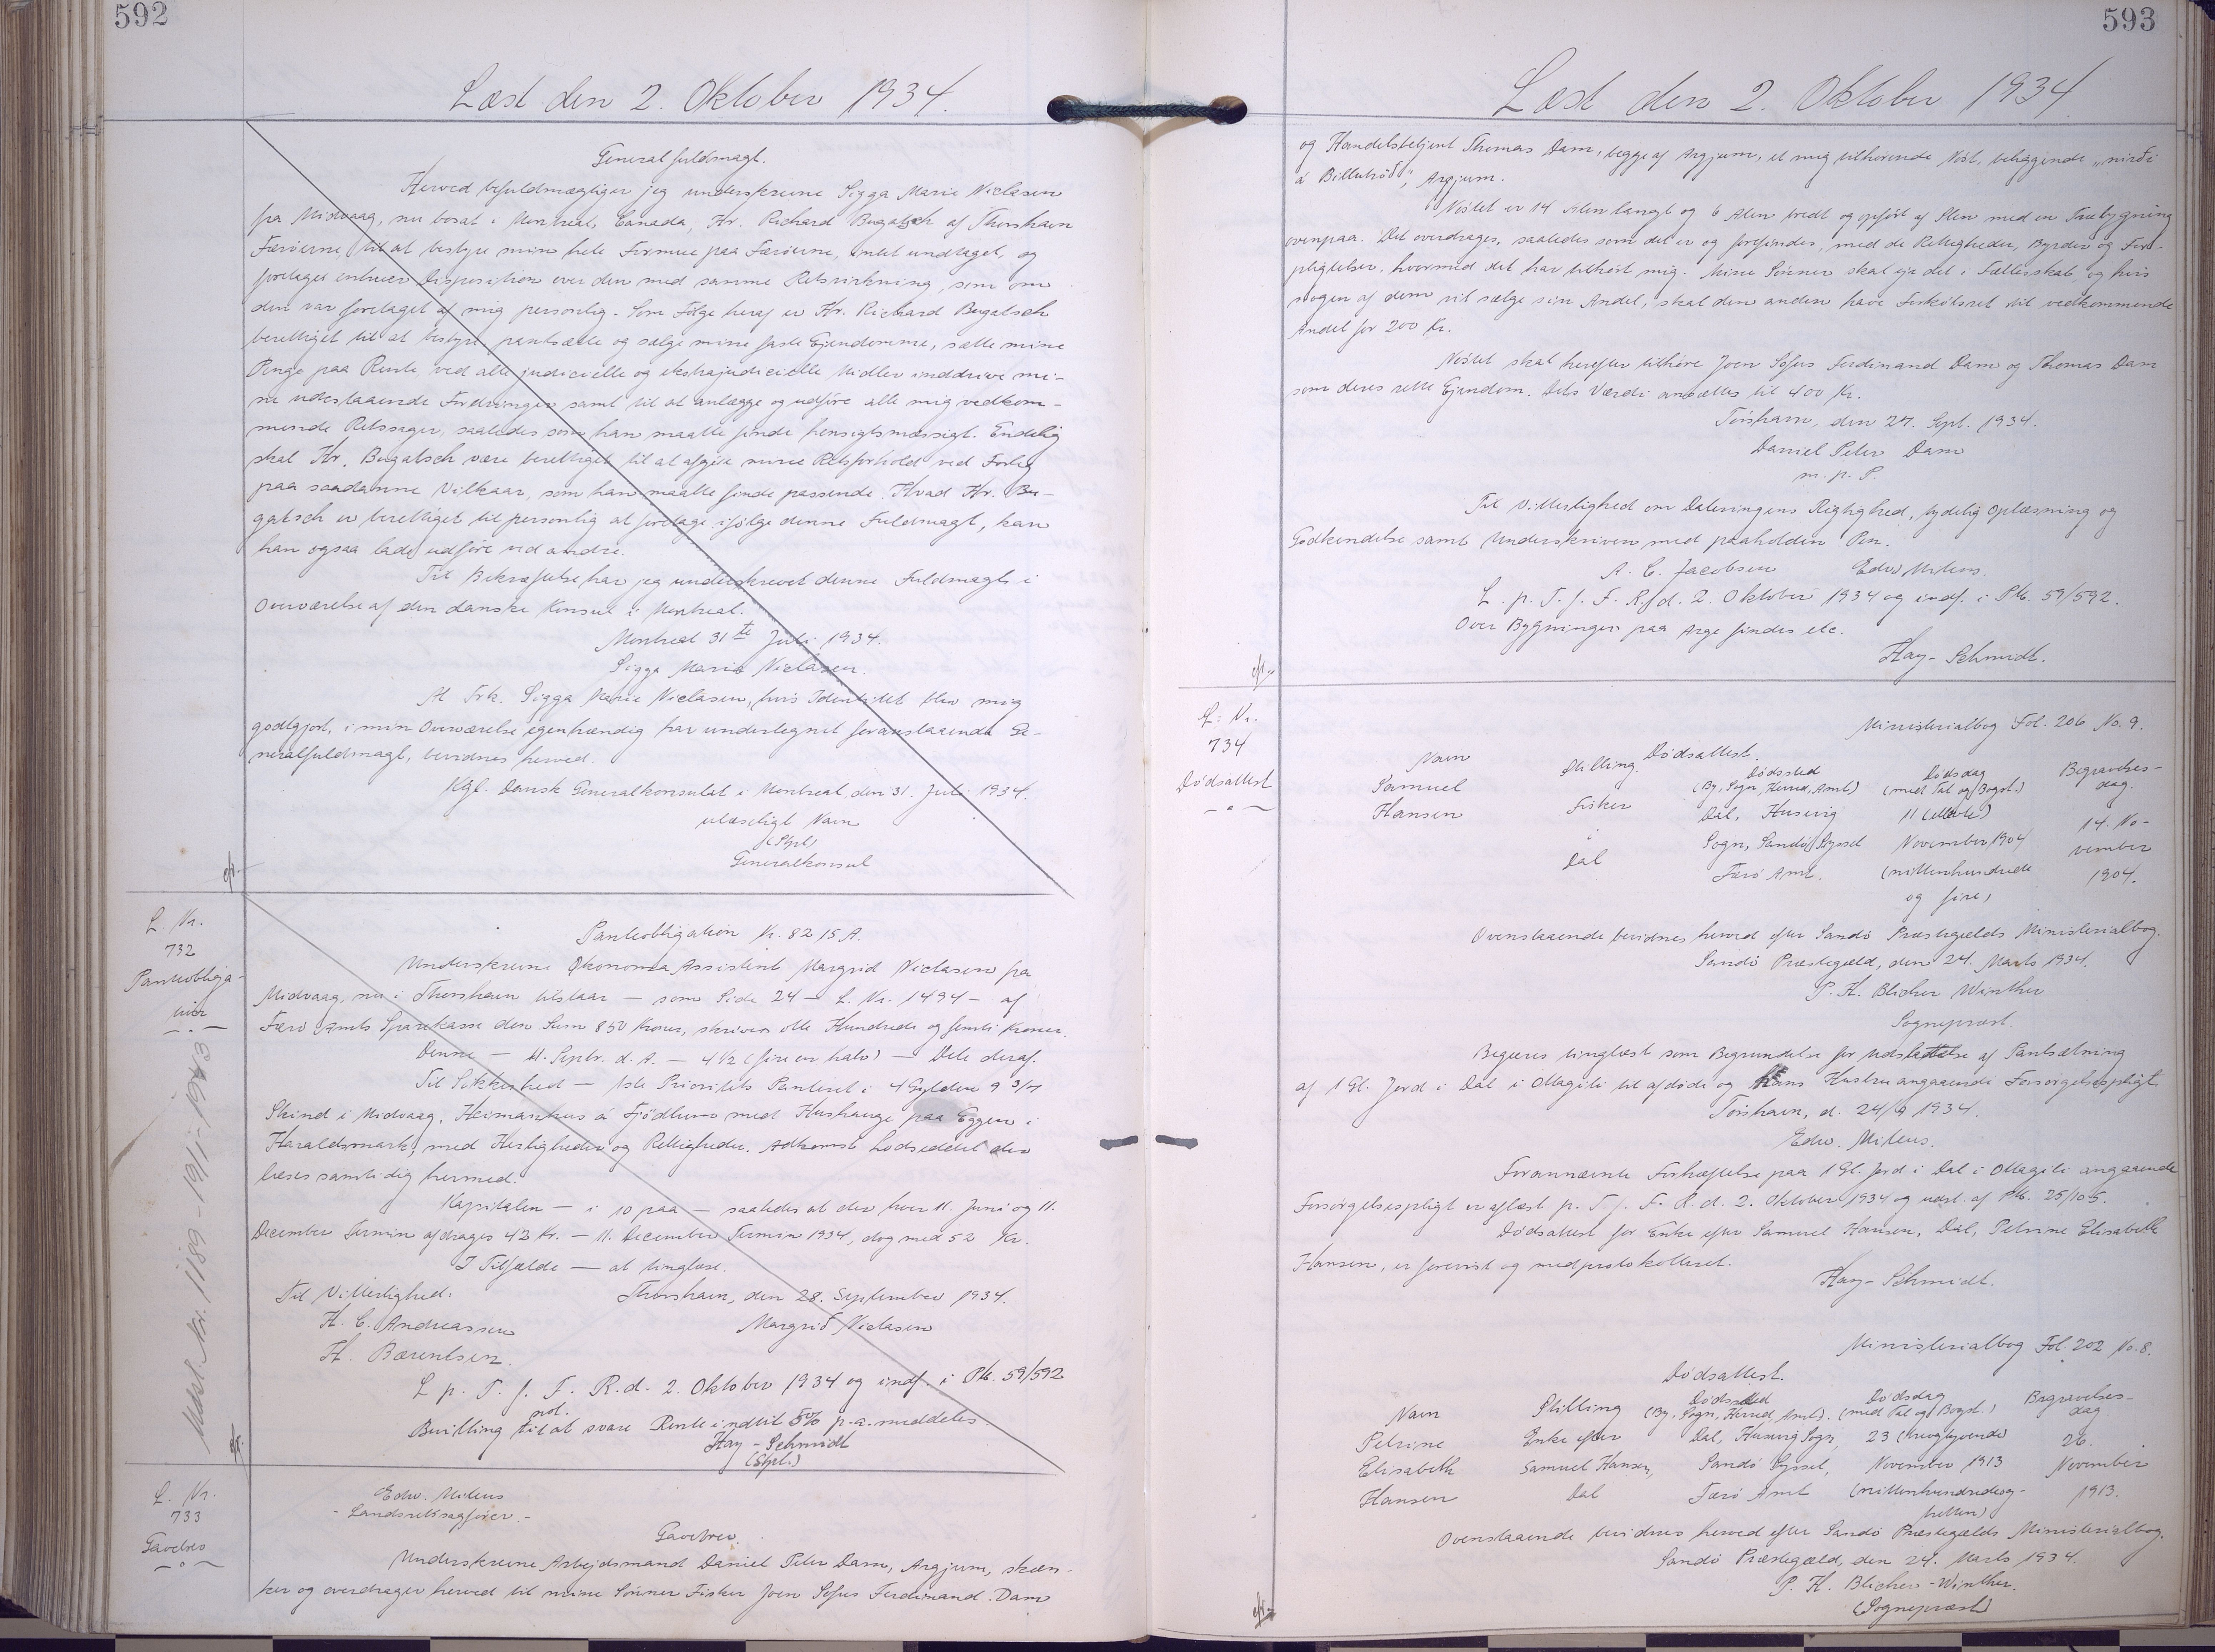 592
Læst den 2. Oktober 1934.
Generalfuldmagt.
Herved befuldmægtiger jeg underskrevne Sigga Marie Niclasen
fra Midvaag, nu bosat i Montreal, Canada, Hr. Richard Bugatsch af Thorshavn
Færöerne, til at bestyre min hele Formue paa Færöerne, intet undtaget, og
foretage enhver Disposition over den med samme Retsvirkning, som om
den var foretaget af mig personlig. Som Fölge heraf er Hr. Richard Bugatsch
berettiget til at bestyre, pantsætte og sælge mine faste Ejendomme, sætte mine
Penge paa Rente, ved alle judicielle og ekstrajudicielle Midler inddrive mi-
ne udestaaende Fordringer samt til at anlægge og udföre alle mig vedkom-
mende Retssager, saaledes som han maatte finde hensigtsmæssigt. Endelig
skal Hr. Bugatsch være berettiget til at afgöre mine Retsforhold ved Forlig
paa saadanne Vilkaar, som han maatte finde passende. Hvad Hr. Bu-
gatsch er berettiget til personlig at foretage ifölge denne Fuldmagt, kan
han ogsaa lade udföre ved andre.
Til Bekræftelse har jeg underskrevet denne Fuldmagt i
Overværelse af den danske Konsul i Montreal.
Montreal 31te Juli 1934.
Sigga Marie Niclasen.
At Frk. Sigga Marie Niclasen, hvis Identitet blev mig
godtgjort, i min Overværelse egenhændig har undertegnet foranstaaende Ge-
neralfuldmagt, bevidnes herved.
Kgl. Dansk Generalkonsulat i Montreal, den 31. Juli 1934.
ulæseligt Navn
(Sgl.)
Generalkonsul
L. Nr.
732
Pantobliga-
tion
Pantobligation Nr. 8215 A.
Underskrevne Økonoma Assistent Margrid Niclasen fra
Midvaag, nu i Thorshavn tilstaar — som Side 24 — L. Nr. 1494 — af
Færö Amts Sparekasse den Sum 850 Kroner, skriver otte Hundrede og femti Kroner.
Denne — 11. Septbr. d. A. — 4 1/2 (fire en halv) — Dele deraf.
Til Sikkerhed — 1ste Prioritets Panteret i 4 Gylden 9 3/7
Skind i Midvaag, Heimarihus á Fjödluns med Hushauge paa Eggen i
Haraldsmark, med Herligheder og Rettigheder. Adkomst Lodseddel der
læses samtidig hermed.
Kapitalen — i 10 paa — saaledes at der hver 11. Juni og 11.
December Termin afdrages 42 Kr. — 11. December Termin 1934, dog med 52 Kr.
I Tilfælde — at tinglæse.
Til Vitterlighed:
Thorshavn, den 28. September 1934.
H. C. Andreassen
Margrid Niclasen
H. Bærentsen.
L. p. T. f. F. R. d. 2. Oktober 1934 og indf. i Pb. 59/592
Bevilling til at svare Rente indtil 5% p.a. meddeles
Hay-Schmidt
(Sgl.)
Udsl. Nr. 1189 - 19/1-1943
L. Nr.
733
Gavebrev
Edw. Mitens
- Landsretssagförer. -
Gavebrev.
Underskrevne Arbejdsmand Daniel Peter Dam, Argjum, skæn-
ker og overdrager herved til mine Sönner Fisker Joen Sofus Ferdinand Dam
593
Læst den 2. Oktober 1934
og Handelsbetjent Thomas Dam, begge af Argjum, et mig tilhörende Nöst, beliggende
Argjum.
Nöstet er 14 Alen langt og 6 Alen bredt og opfört af Sten med en Træbygning
ovenpaa. Det overdrages, saaledes som det er og forefindes, med de Rettigheder, Byrder og For-
pligtelser, hvormed det har tilhört mig. Mine Sönner skal eje det i Fællesskab og hvis
nogen af dem vil sælge sin Andel, skal den anden have Forkøbsret til vedkommende
Andel for 200 Kr.
Nöstet skal herefter tilhöre Joen Sofus Ferdinand Dam og Thomas Dam
som deres rette Ejendom. Dets Værdi ansættes til 400 Kr.
Torshavn, den 27. Sept. 1934.
Daniel Peter Dam
m. p. P.
Til Vitterlighed om Dateringens Rigtighed, tydelig Oplæsning og
Godkendelse samt Underskriven med paaholden Pen.
A. C. Jacobsen Edw. Mitens.
L. p. T. f. F. R. d. 2. Oktober 1934 og indf. i Pb. 59/592.
Over Bygninger paa Arge findes etc.
Hay-Schmidt.
L. Nr.
734
Dödsattest
Ministerialbog Fol. 206 No. 9.
Dödsattest.
Navn Stilling Dödssted Dödsdag Begravelses-
(By, Sogn, Herred, Amt) (med Tal og Bogst.) dag.
Samuel Fisker Dal, Husevig 11 (ellevte) 14. No-
Hansen Dal Sogn, Sandö Syssel November 1904 vember
Færö Amt. (nittenhundrede 1904.
og fire)
Ovenstaaende bevidnes herved efter Sandö Præstegælds Ministerialbog.
Sandö Præstegæld, den 24. Marts 1934.
P. H. Blicher Winther
Sognepræst.
Begæres tinglæst som Begrundelse for Udslettelse af Pantsætning
af 1 Gl. Jord i Dal i Ottagili til afdöde og hans Hustru angaaende Forsörgelsespligt
Torshavn, d. 24/9 1934.
Edw. Mitens.
Forannævnte Forhæftelse paa 1 Gl. Jord i Dal i Ottagili angaaende
Forsörgelsespligt er aflæst p. T. f. F. R. d. 2. Oktober 1934 og udsl. af Pb. 25/105.
Dödsattest for Enke efter Samuel Hansen, Dal, Petrine Elisabeth
Hansen, er forevist og medprotokolleret.
Hay-Schmidt.
Ministerialbog Fol. 202 No. 8.
Dödsattest.
Navn Stilling Dödssted Dödsdag Begravelses-
(By, Sogn, Herred, Amt). (med Tal og Bogst.) dag
Petrine Enke efter Dal, Husevig Sogn, 23 (treogtyvende) 26.
Elisabeth Samuel Hansen, Sandö Syssel, November 1913 November
Hansen Dal Færö Amt (nittenhundredeog- 1913.
tretten)
Ovenstaaende bevidnes herved efter Sandö Præstegælds Ministerialbog.
Sandö Præstegæld, den 24. Marts 1934.
P. H. Blicher-Winther.
(Sognepræst)